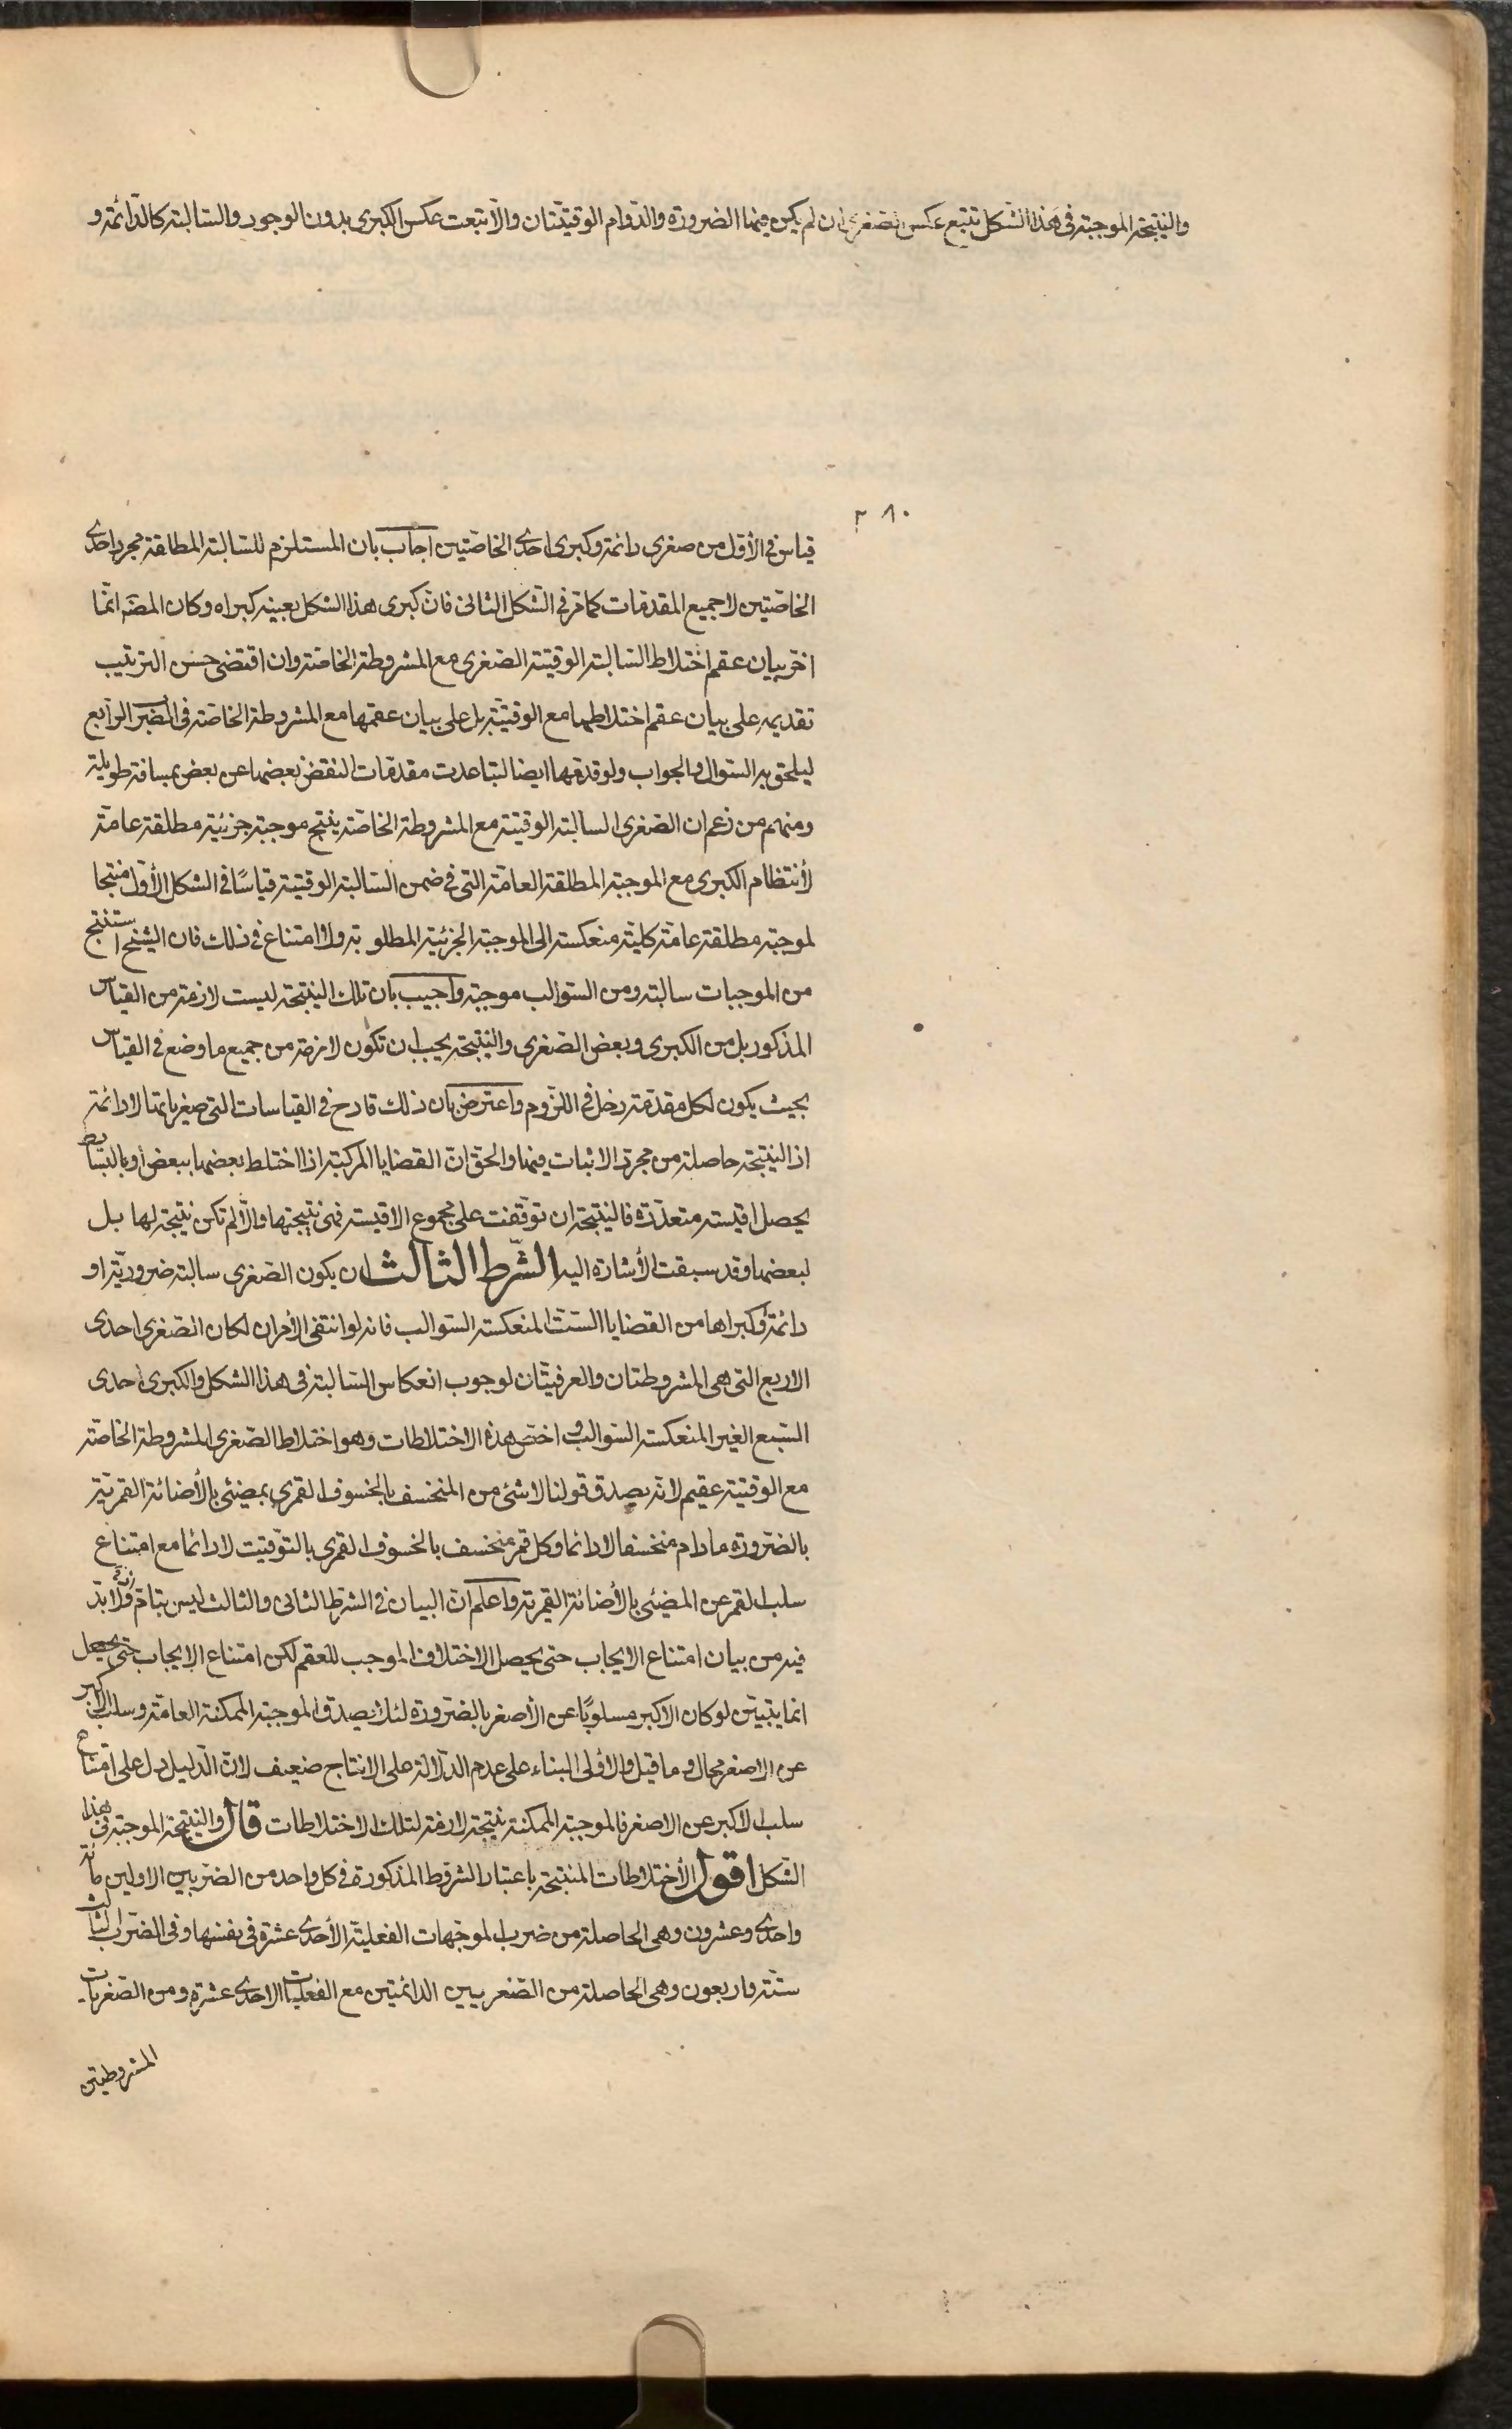 والنتيجة الموجبة فى هذا الشكل تتبع عكس الصغرى ان لم يكن فيها الضرورة والدوام الوقتيتان والّا تبعت عكس الكبرى بدون الوجود والسالبة كالدائمة و
٢٨٠
قياس فى الأول من صغرى دائمة وكبرى احدى الخاصتين اجاب بان المستلزم للسالبة المطلقة مجرد احدى
الخاصتين لا جميع المقدمات كما مر فى الشكل الثانى فان كبرى هذا الشكل بعينه كبراه وكان المصَ انما
اخر بيان عقم اختلاط السالبة الوقتية الصغرى مع المشروطة الخاصة وان اقتضى حسن الترتيب
تقديمه على بيان عقم اختلاطها مع الوقتية بل على بيان عقمها مع المشروطة الخاصة فى الضرب الرابع
ليلحق به السؤال والجواب ولو قدمها ايضا لتباعدت مقدمات النقض بعضها عن بعض بمسافة طويلة
ومنهم من زعم ان الصغرى السالبة الوقتية مع المشروطة الخاصة ينتج موجبة جزئية مطلقة عامة
لأنتظام الكبرى مع الموجبة المطلقة العامة التى فى ضمن السالبة الوقتية قياسًا فى الشكل الأول منتجا
لموجبة مطلقة عامة كلية منعكسة الى الموجبة الجزئية المطلوبة ولا امتناع فى ذلك فان الشيخ استنتج
من الموجبات سالبة ومن السوالب موجبة واجيب بان تلك النتيجة ليست لازمة من القياس
المذكور بل من الكبرى وبعض الصغرى والنتيجة يجب ان تكون لازمة من جميع ما وضع فى القياس
بحيث يكون لكل مقدمة دخل فى اللزوم واعترض بان ذلك قادح فى القياسات التى صغرياتها لا دائمة
اذ النتيجة حاصلة من مجرد الاثبات فيها والحق ان القضايا المركبة اذا اختلط بعضها ببعض او بالبسائط
يحصل اقيسة متعددة فالنتيجة ان توقفت على مجموع الاقيسة فهى نتيجتها والّا لم تكن نتيجة لها بل
لبعضها وقد سبقت الأشارة اليه الشرط الثالث ان يكون الصغرى سالبة ضرورية او
دائمة وكبراها من القضايا الست المنعكسة السوالب فانه لو انتفى الأمران لكان الصغرى احدى
الاربع التى هى المشروطتان والعرفيتان لوجوب انعكاس السالبة فى هذا الشكل والكبرى احدى
السبع الغير المنعكسة السوالب واخص هذه الاختلاطات وهو اختلاط الصغرى المشروطة الخاصة
مع الوقتية عقيم لانه يصدق قولنا لا شئ من المنخسف بالخسوف القمرى بمضئى بالأضائة القمرية
بالضرورة ما دام منخسفا لا دائما وكل قمر منخسف بالخسوف القمرى بالتوقيت لا دائما مع امتناع
سلب القمر عن المضئى بالأضائة القمرية واعلم ان البيان فى الشرط الثانى والثالث ليس بتام لأنه لا بد
فيه من بيان امتناع الايجاب حتى يحصل الاختلاف الموجب للعقم لكن امتناع الايجاب حتى يحصل
انما يتبين لو كان الاكبر مسلوبًا عن الأصغر بالضرورة لئلا يصدق الموجبة الممكنة العامة وسلب الاكبر
عن الاصغر محال وما قيل والاولى البناء على عدم الدلالة على الانتاج ضعيف لان الدليل دل على امتناع
سلب الاكبر عن الاصغر فالموجبة الممكنة نتيجة لازمة لتلك الاختلاطات قال والنتيجة الموجبة فى هذا
الشكل اقول الأختلاطات المنتجة باعتبار الشروط المذكورة فى كل واحد من الضربين الاولين مائة
واحدى وعشرون وهى الحاصلة من ضرب الموجهات الفعلية الأحدى عشرة فى نفسها وفى الضرب الثالث
ستة واربعون وهى الحاصلة من الصغريين الدائمتين مع الفعليات الاحدى عشرة ومن الصغريات
المشروطتين